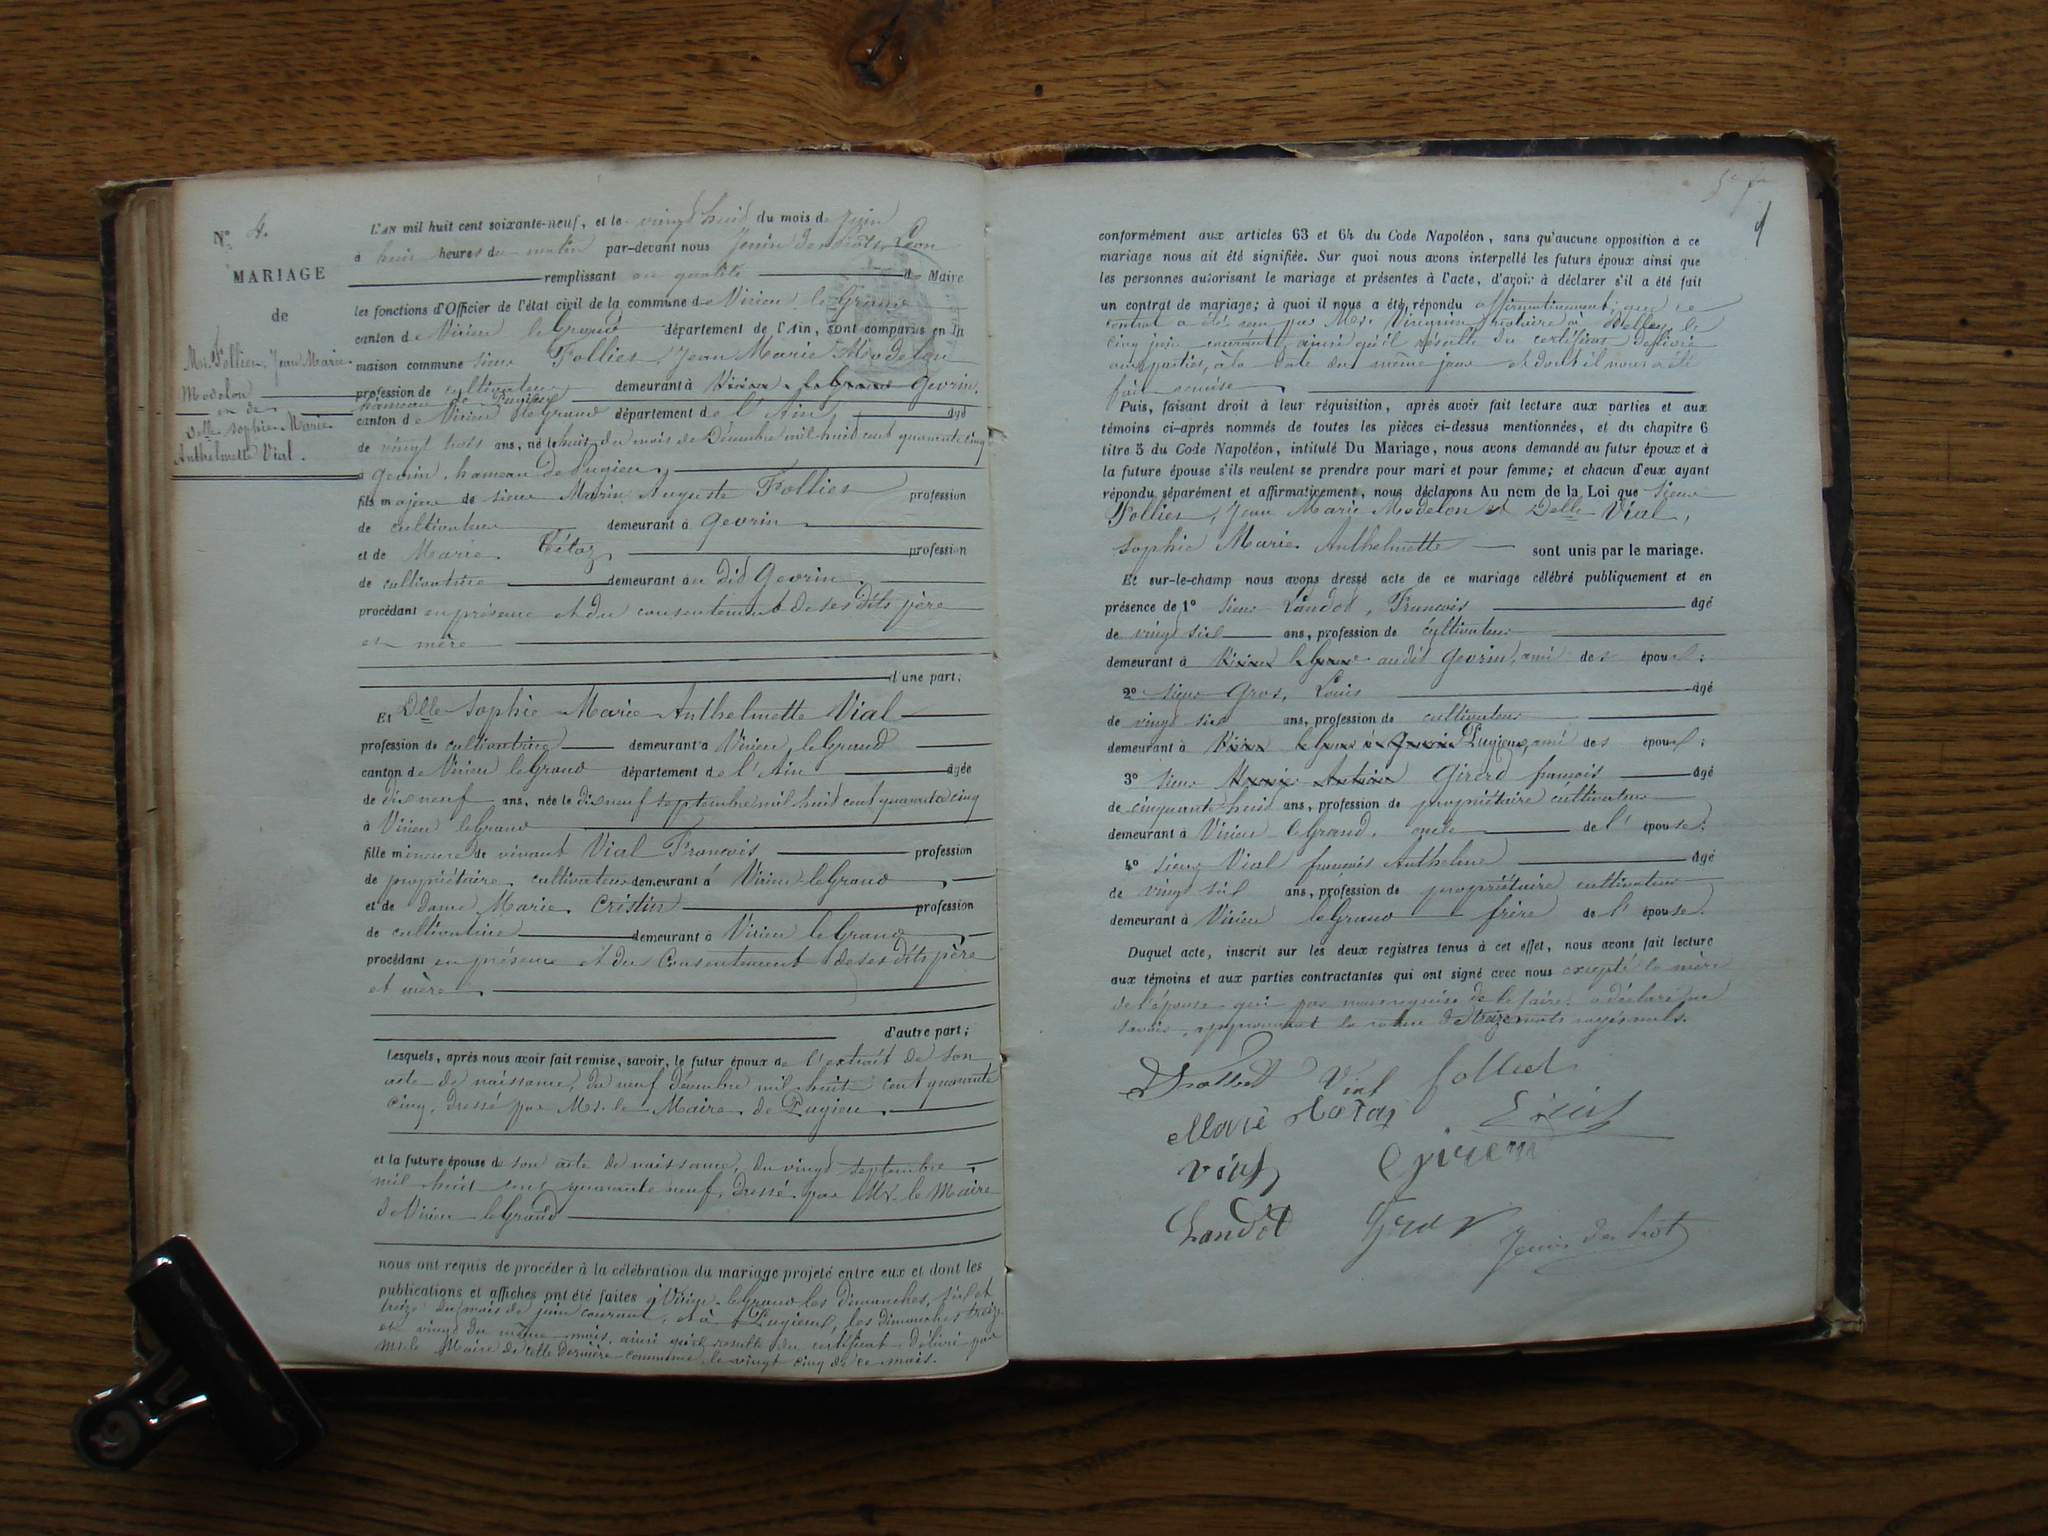 N° 4.
MARIAGE
de
Mr. Follies, Jean Marie
Modelon
et de
Delle Sophie Marie
Anthelmette Vial.
L'AN mil huit cent soixante-neuf, et le vingt huit du mois de Juin
à huit heures du matin par-devant nous Jenin Léon
remplissant en qualité de Maire
les fonctions d'Officier de l'état civil de la commune de Virieu le Grand
canton de Virieu le Grand département de l'Ain, sont comparus en la
maison commune sieur Follies, Jean Marie Modelon
profession de cultivateur demeurant à Virieu le Grand Gevrin,
hameau de Pugieu
canton de Virieu le Grand département de l'Ain, âgé
de vingt trois ans, né le huit du mois de Décembre mil huit cent quarante cinq
à Gevrin, hameau de Pugieu,
fils majeur de sieur Marin Auguste Follies profession
de cultivateur demeurant à Gevrin
et de Marie profession
de cultivatrice demeurant au dit Gevrin,
procédant en présence et du consentement de ses dits père
et mère
d'une part;
Et Dlle Sophie Marie Anthelmette Vial
profession de cultivatrice demeurant à Virieu le Grand
canton de Virieu le Grand département de l'Ain âgée
de dix neuf ans, née le dix neuf septembre mil huit cent quarante cinq
à Virieu le Grand
fille mineure de vivant Vial François profession
de propriétaire cultivateur demeurant à Virieu le Grand,
et de dame Marie Cristin profession
de cultivatrice demeurant à Virieu le Grand,
procédant en présence et du Consentement de ses dits père
et mère,
d'autre part;
Lesquels, après nous avoir fait remise, savoir, le futur époux de l'extrait de son
acte de naissance, du neuf décembre mil huit cent quarante
cinq, dressé par Mr. le Maire de Pugieu.
et la future épouse de son acte de naissance, du vingt septembre
mil huit cent quarante neuf, dressé par Mr. le Maire
de Virieu le Grand
nous ont requis de procéder à la célébration du mariage projeté entre eux et dont les
publications et affiches ont été faites à Virieu le Grand les dimanches, six et
treize du mois de juin courant, et à Pugieu, les dimanches treize
et vingt du même mois, ainsi qu'il résulte du certificat délivré par
Mr. le Maire de cette dernière commune le vingt cinq de ce mois.
conformément aux articles 63 et 64 du Code Napoléon, sans qu'aucune opposition à ce
mariage nous ait été signifiée. Sur quoi nous avons interpellé les futurs époux ainsi que
les personnes autorisant le mariage et présentes à l'acte, d'avoir à déclarer s'il a été fait
un contrat de mariage; à quoi il nous a été répondu affirmativement; que ce
contrat a été reçu par Me. notaire à Belley, le
cinq juin courant, ainsi qu'il résulte du certificat délivré
aux parties, à la date du même jour et dont il nous a été
fait remise
Puis, faisant droit à leur réquisition, après avoir fait lecture aux parties et aux
témoins ci-après nommés de toutes les pièces ci-dessus mentionnées, et du chapitre 6
titre 5 du Code Napoléon, intitulé Du Mariage, nous avons demandé au futur époux et à
la future épouse s'ils veulent se prendre pour mari et pour femme; et chacun d'eux ayant
répondu séparément et affirmativement, nous déclarons Au nom de la Loi que sieur
Follies, Jean Marie Modelon et Delle Vial,
Sophie Marie Anthelmette sont unis par le mariage.
Et sur-le-champ nous avons dressé acte de ce mariage célébré publiquement et en
présence de 1° sieur Landot, François âgé
de vingt six ans, profession de cultivateur
demeurant à Virieu le Grand audit Gevrin, ami des époux;
2° sieur Gros, Louis âgé
de vingt six ans, profession de cultivateur
demeurant à Virieu le Grand à Gevrin Pugieu, ami des époux;
3° sieur Girerd françois âgé
de cinquante huit ans, profession de propriétaire cultivateur
demeurant à Virieu le Grand, oncle de l'épouse;
4° sieur Vial françois Anthelme âgé
de vingt six ans, profession de propriétaire cultivateur
demeurant à Virieu le Grand frère de l'épouse.
Duquel acte, inscrit sur les deux registres tenus à cet effet, nous avons fait lecture
aux témoins et aux parties contractantes qui ont signé avec nous excepté la mère
de l'épouse qui par nous requise de le faire, a déclaré ne
savoir, approuvant la rature de treize mots rayés nuls.
Vial folliet
Marie
Vial Girerd
Landot Gros